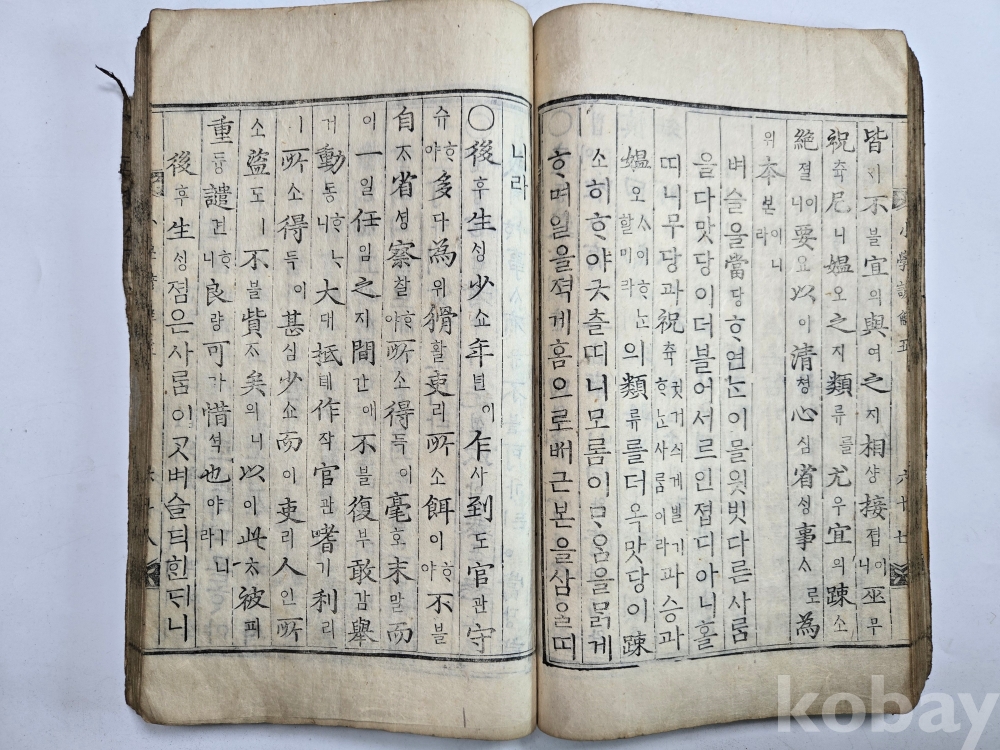 小學諺解五
六十七
皆개不블宜의與여之지相샹接졉이니巫무
祝츅尼니媼오之지類류를尤우宜의疎소
絶졀이니要요以이清쳥心심省셩事ᄉᆞ로為
위本본이니라
벼슬을當당ᄒᆞ연ᄂᆞᆫ이믈읫빗다른사ᄅᆞᆷ
을다맛당이더블어서르인졉디아니홀
ᄯᅵ니무당과祝츅귓거싀게별기ᄒᆞᄂᆞᆫ사ᄅᆞᆷ이라과승과
媼오ᄉᆞ이ᄒᆞᄂᆞᆫ할미라의類류를더옥맛당이疎
소히ᄒᆞ야긋츨ᄯᅵ니모롬이ᄆᆞᄋᆞᆷ을ᄆᆞᆰ게
ᄒᆞ며일을젹게홈으로ᄡᅥ근본을삼을ᄯᅵ
니라
○後후生ᄉᆡᆼ少쇼年년이乍사到도官관守
슈ᄒᆞ야多다為위猾활吏리所소餌이ᄒᆞ야不블
自ᄌᆞ省셩察찰ᄒᆞ야所소得득이毫호末말而
이一일任임之지間간애不블復부敢감舉
거動동ᄒᆞᄂᆞ니大대抵뎌作작官관嗜기利리
ㅣ所소得득이甚심少쇼而이吏리人인所
소盜도ㅣ不블貲ᄌᆞ矣의니以이此ᄎᆞ被피
重듕譴견ᄒᆞ니良량可가惜셕也야ㅣ니라
後후生ᄉᆡᆼ졈은사ᄅᆞᆷ이ᄀᆞᆺ벼슬듸ᄒᆞᆫᄃᆡ니
kobay